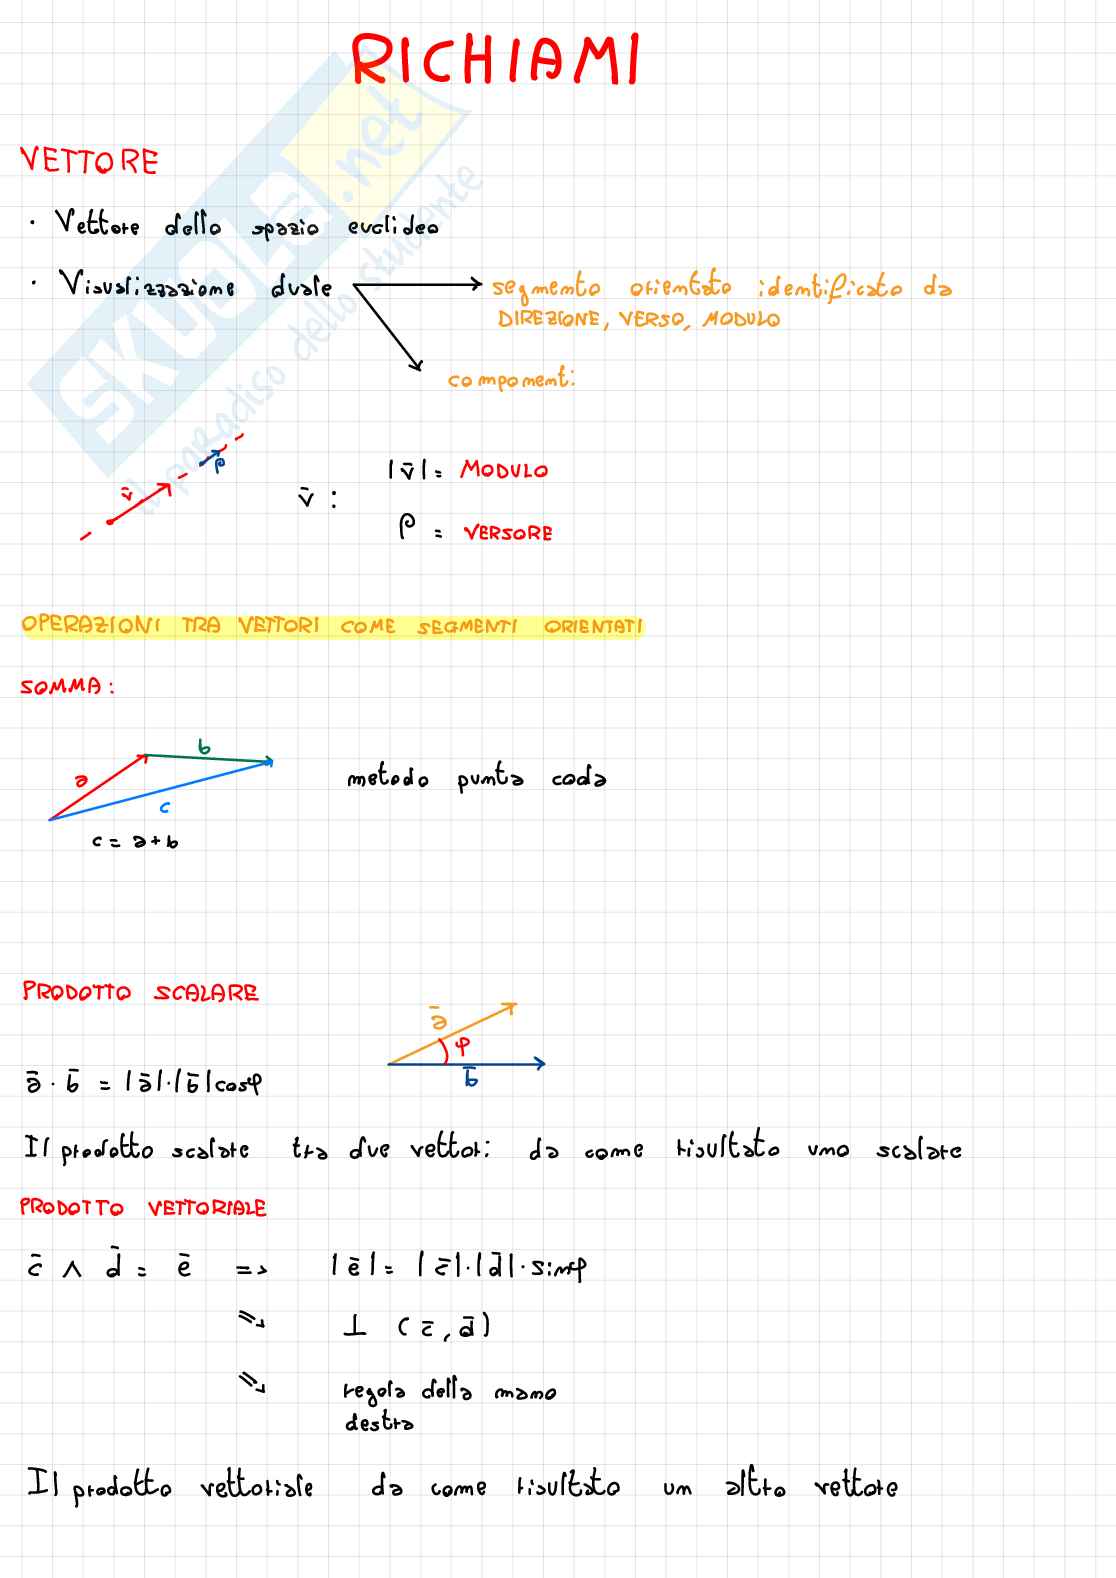 RICHIAMI
VETTORE
· Vettore dello spazio euclideo
· Visualizzazione duale
segmento orientato identificato da
DIREZIONE, VERSO, MODULO
componenti
v̄
ρ
v̄ :
|v̄| = MODULO
ρ = VERSORE
OPERAZIONI TRA VETTORI COME SEGMENTI ORIENTATI
SOMMA:
a
b
c
c = a + b
metodo punta coda
PRODOTTO SCALARE
ā
φ
b̄
ā · b̄ = |ā|·|b̄|cosφ
Il prodotto scalare tra due vettori da come risultato uno scalare
PRODOTTO VETTORIALE
c̄ ∧ d̄ = ē => |ē| = |c̄|·|d̄|·sinφ
=> ⊥ (c̄, d̄)
=> regola della mano
destra
Il prodotto vettoriale da come risultato un altro vettore
SKUOLA.net
il paradiso dello studente